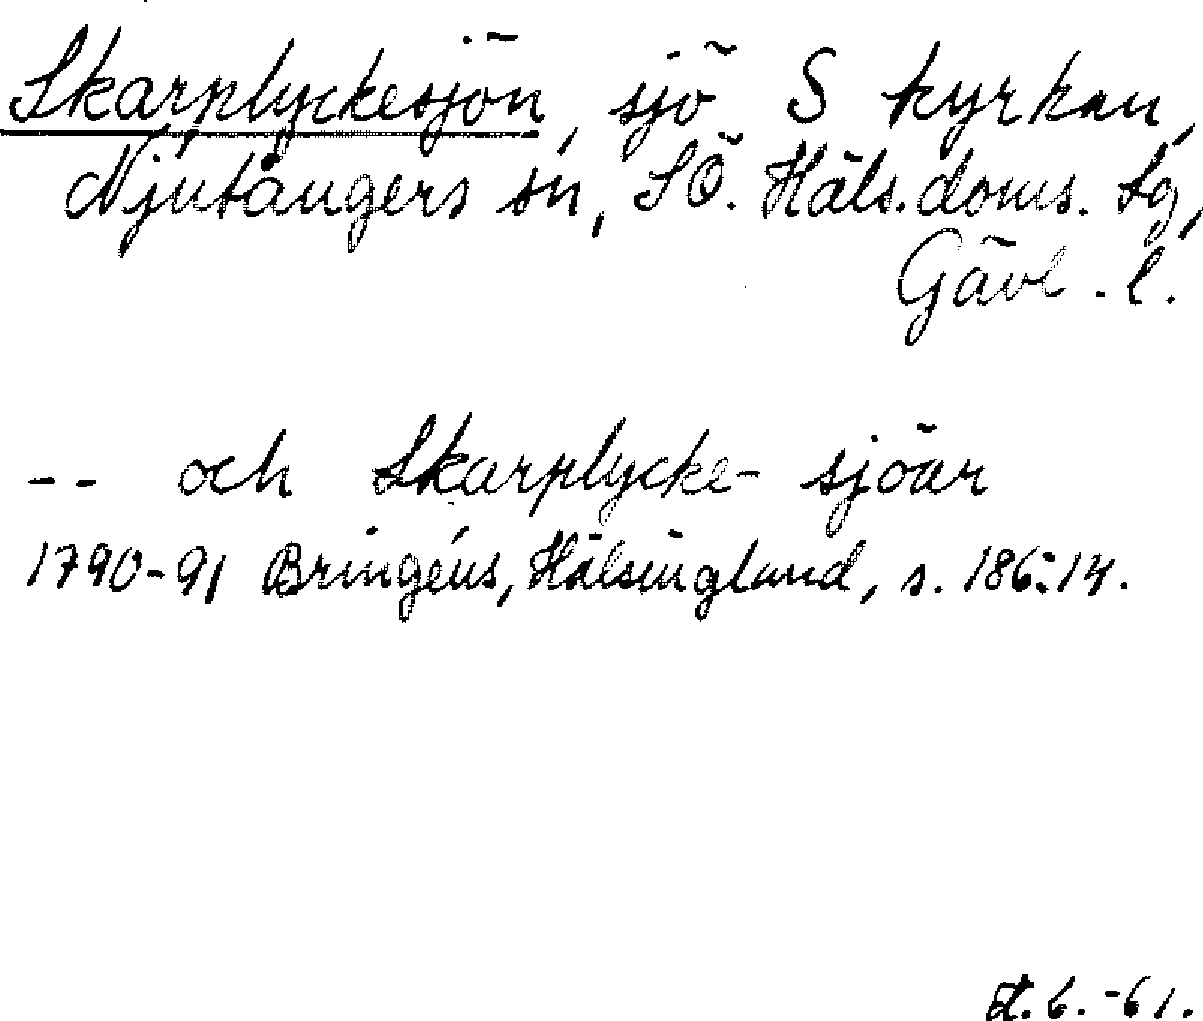 Skarplyckesjön, sjö S kyrkan,
Njutångers sn, SÖ. Häls. doms. tg,
Gävl. l.
-- och Skarplycke- sjöar
1790-91 Bringéus, Hälsingland, s. 186:14.
6. -61.